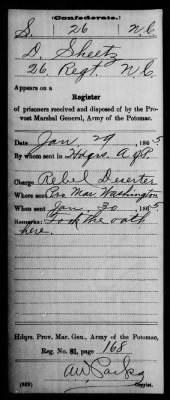 (Confederate.)
S. | 26 | N.C.
D. Sheetz
26 Regt. N.C.
Appears on a
Register
of prisoners received and disposed of by the Pro-
vost Marshal General, Army of the Potomac.
Date Jan. 29, 1865
By whom sent in Hdqrs. A of P.
Charge Rebel Deserter
Where sent Pro. Mar. Washington
When sent Jan. 30, 1865
Remarks: Took the oath
here.
Hdqrs. Prov. Mar. Gen., Army of the Potomac,
Reg. No. 81, page 168
Copyist.